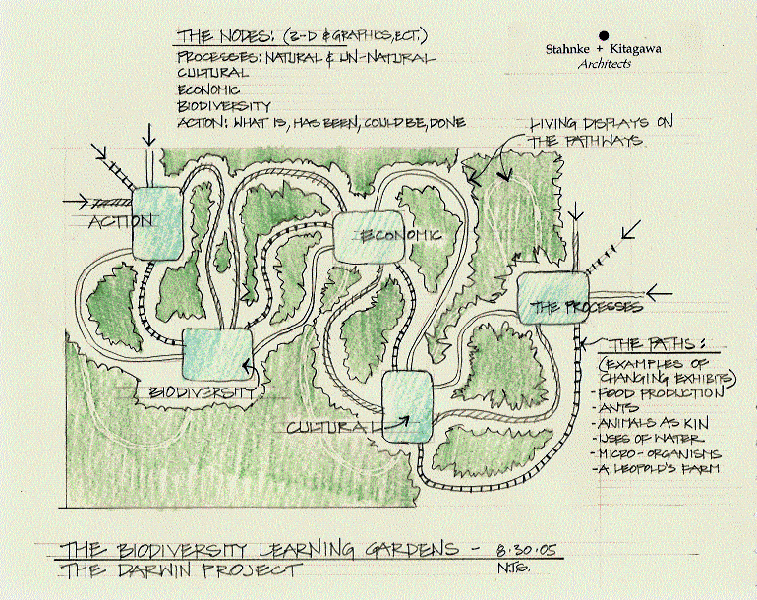 THE NODES: (3-D & GRAPHICS, ECT.)
PROCESSES: NATURAL & UN-NATURAL
CULTURAL
ECONOMIC
BIODIVERSITY
ACTION: WHAT IS, HAS BEEN, COULD BE, DONE
Stahnke + Kitagawa
Architects
LIVING DISPLAYS ON
THE PATHWAYS.
ACTION
ECONOMIC
THE PROCESSES
BIODIVERSITY
CULTURAL
THE PATHS:
(EXAMPLES OF
CHANGING EXHIBITS)
-FOOD PRODUCTION
-ANTS
-ANIMALS AS KIN
-USES OF WATER
-MICRO-ORGANISMS
-A LEOPOLD'S FARM
THE BIODIVERSITY LEARNING GARDENS - 8.30.05
THE DARWIN PROJECT N.T.S.